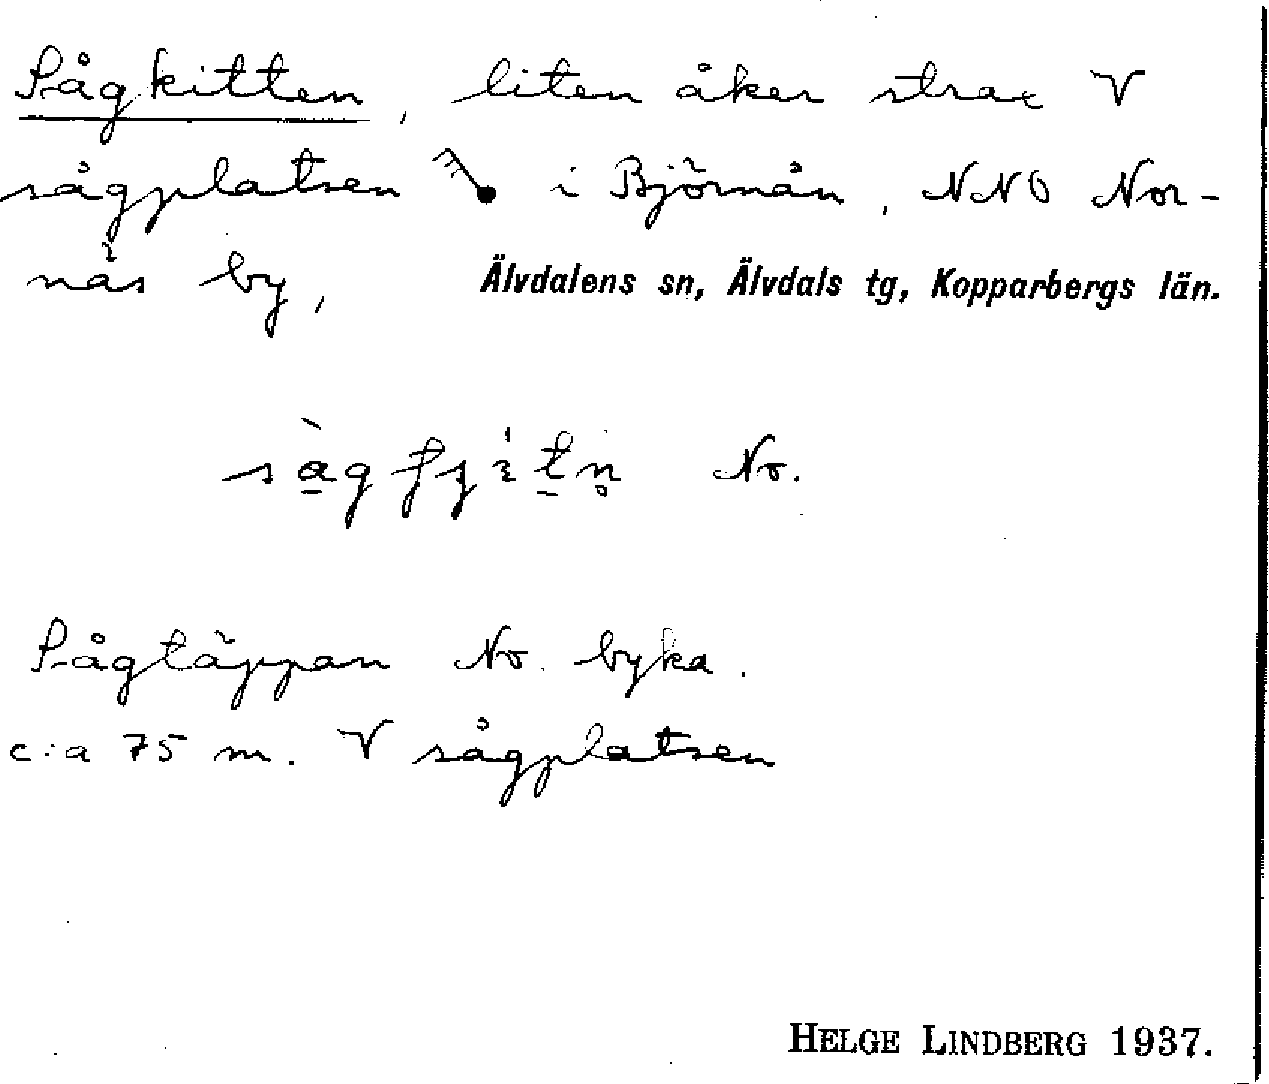 Sågkitten, liten åker strax V
sågplatsen i Björnån, NNO Nor-
näs by, Älvdalens sn, Älvdals tg, Kopparbergs län.
No.
Sågtäppan No. byka.
c:a 75 m. V sågplatsen
HELGE LINDBERG 1937.